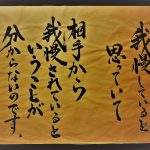 我慢していると
思っていて
相手から
我慢されていると
いうことが
分からないのです。